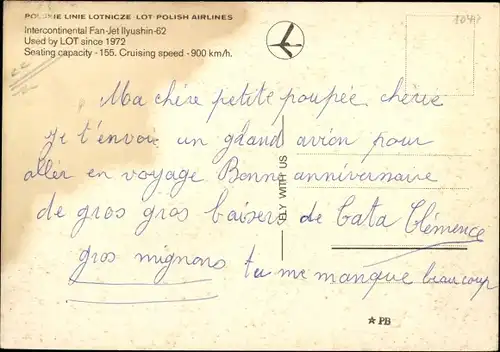 POLSKIE LINIE LOTNICZE · LOT · POLISH AIRLINES
Intercontinental Fan-Jet Ilyushin-62
Used by LOT since 1972
Seating capacity - 155. Cruising speed - 900 km/h.
Ma chère petite poupée chérie
je t'envoie un grand avion pour
aller en voyage Bonne anniversaire
de gros gros baisers de Cata Clémence
gros mignons tu me manque beaucoup
FLY WITH US
★ PB